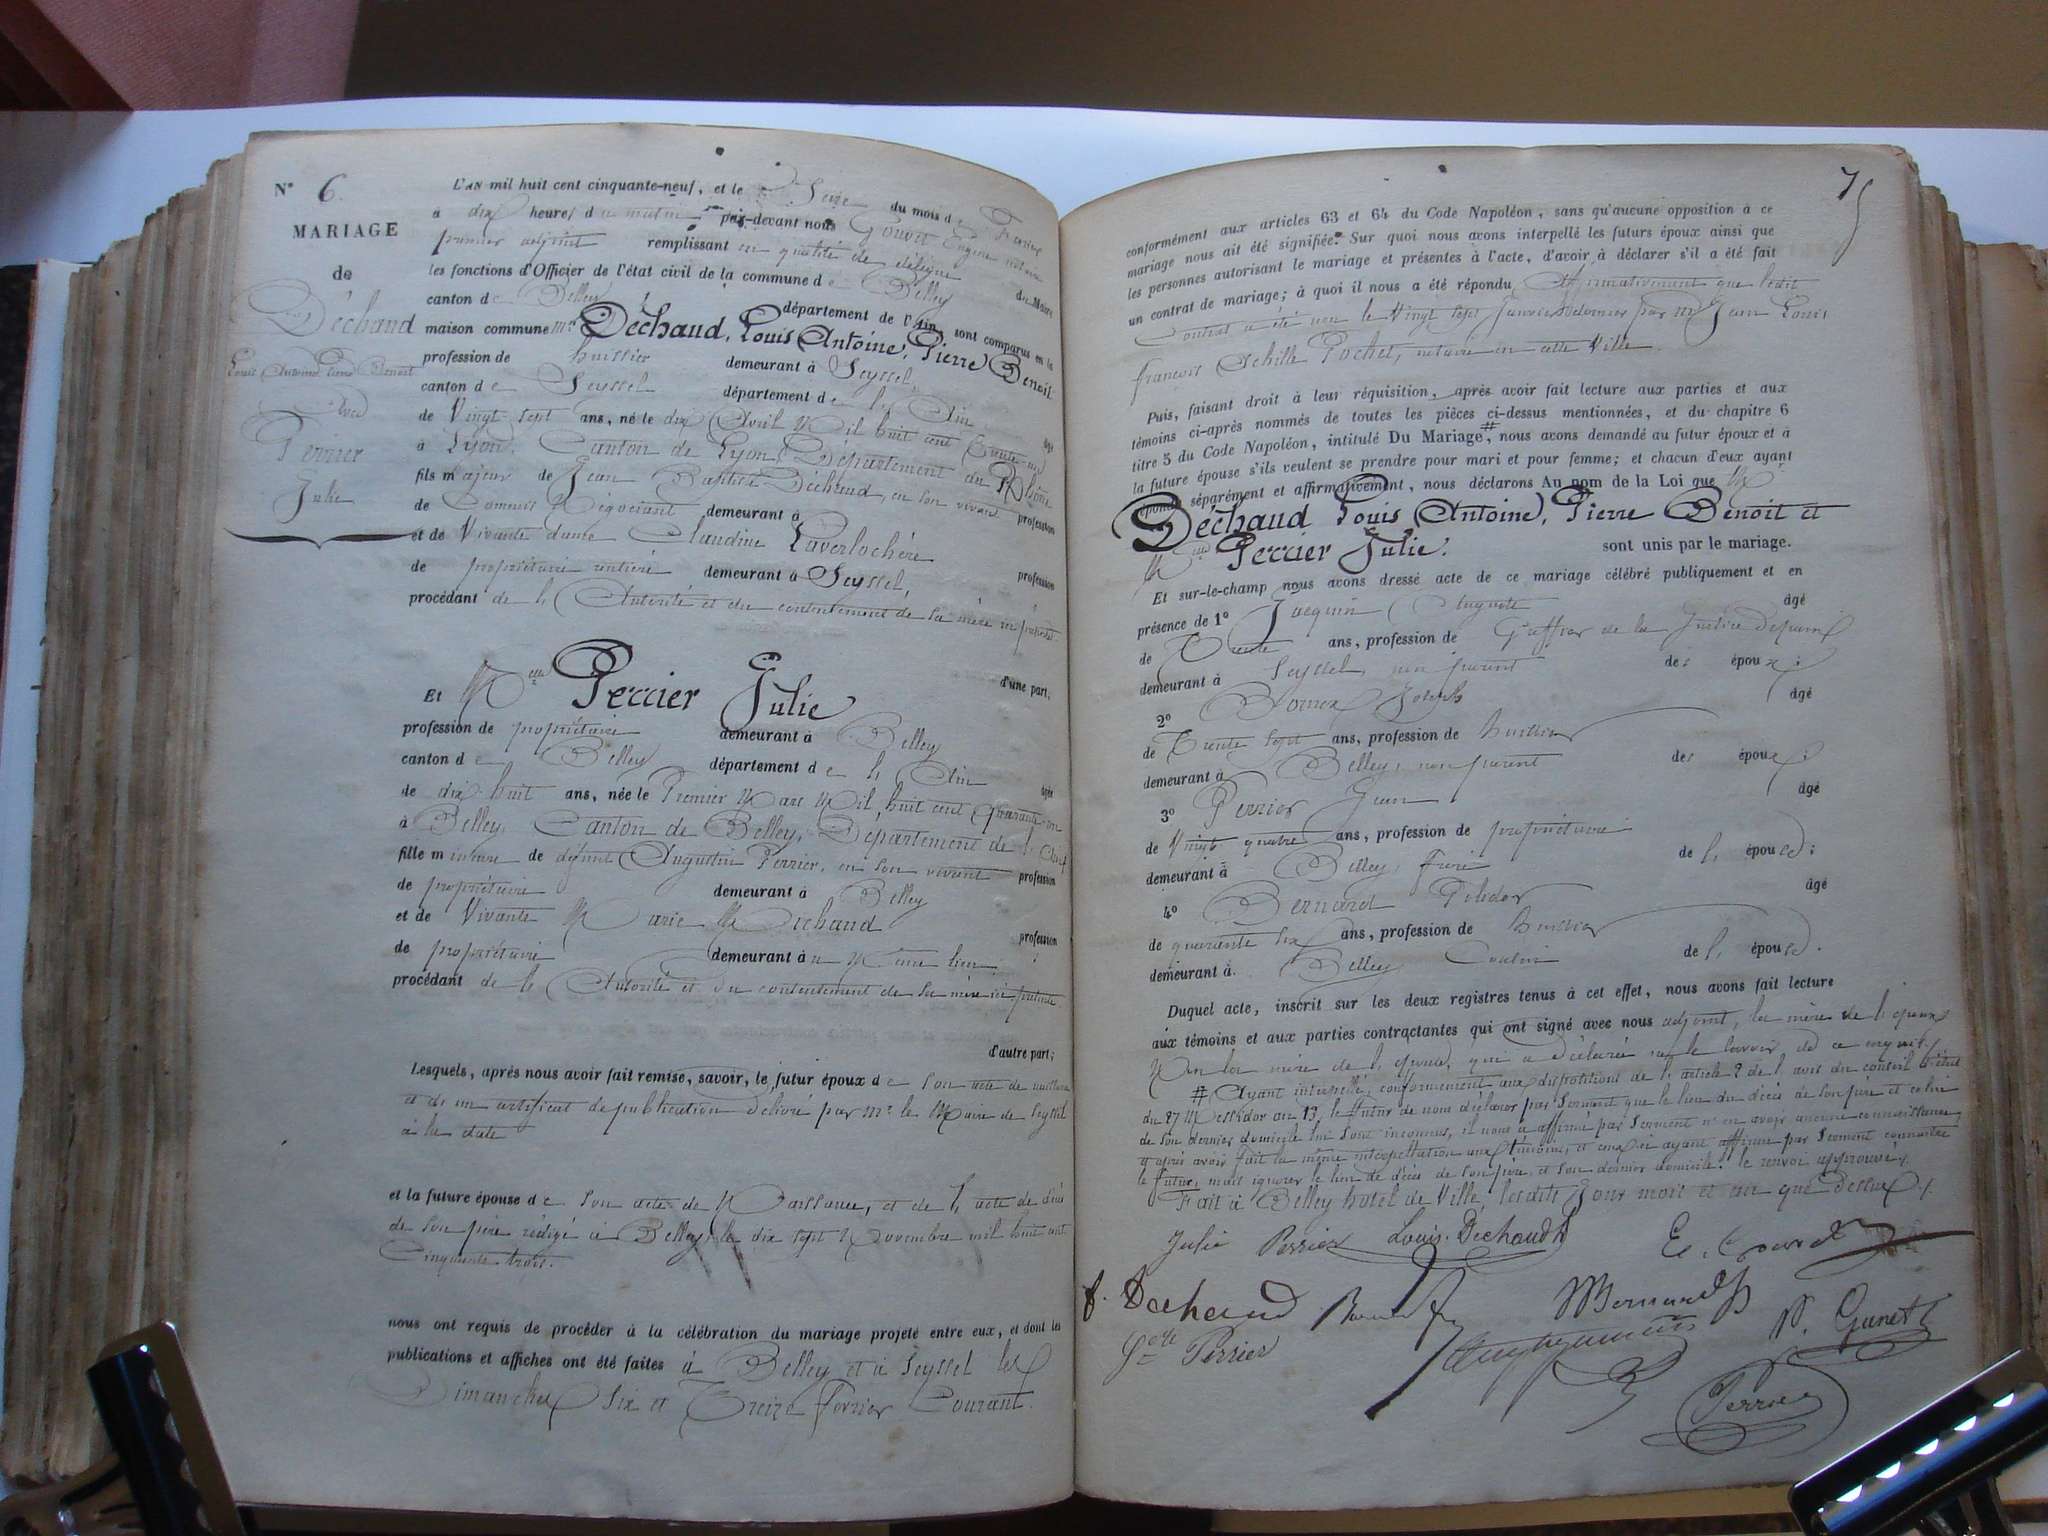 N° 6.
MARIAGE
de
Déchaud
Louis Antoine Pierre Benoit
avec
Perrier
Julie
L'AN mil huit cent cinquante-neuf, et le Seize du mois de Février
à dix heures du matin, par-devant nous Eugène notaire
premier adjoint remplissant en qualité de délégué du Maire
les fonctions d'Officier de l'état civil de la commune de Belley
canton de Belley département de l'Ain, sont comparus en la
maison commune Mr Déchaud, Louis Antoine, Pierre Benoit
profession de huissier demeurant à Seyssel,
canton de Seyssel département de l'Ain âgé
de Vingt sept ans, né le dix Avril Mil huit cent
à Lyon, Canton de Lyon, Département du Rhône
fils majeur de Jean Baptiste Déchaud, en son vivant profession
de Commis Négociant demeurant à
et de Vivante dame Claudine Laverlochère profession
de propriétaire rentière demeurant à Seyssel,
procédant de l'Autorité et du consentement de sa mère ici présente
d'une part;
Et Melle Perrier Julie
profession de propriétaire demeurant à Belley
canton de Belley département de l'Ain âgée
de dix-huit ans, née le Premier Mars Mil huit cent Quarante un
à Belley, Canton de Belley, Département de l'Ain
fille mineure de défunt Augustin Perrier, en son vivant profession
de propriétaire demeurant à Belley
et de Vivante Marie Michaud profession
de propriétaire demeurant au Même lieu
procédant de l'Autorité et du consentement de sa mère ici présente
d'autre part;
Lesquels, après nous avoir fait remise, savoir, le futur époux de son acte de naissance
et de un certificat de publication délivré par Mr le Maire de Seyssel
à la date
et la future épouse de son acte de Naissance, et de l'acte de décès
de son père rédigé à Belley, le dix sept Novembre mil huit cent
Cinquante trois.
nous ont requis de procéder à la célébration du mariage projeté entre eux, et dont les
publications et affiches ont été faites à Belley et à Seyssel les
Dimanches Six et Treize Février Courant.
75
conformément aux articles 63 et 64 du Code Napoléon, sans qu'aucune opposition à ce
mariage nous ait été signifiée. Sur quoi nous avons interpellé les futurs époux ainsi que
les personnes autorisant le mariage et présentes à l'acte, d'avoir à déclarer s'il a été fait
un contrat de mariage; à quoi il nous a été répondu Affirmativement que ledit
Contrat a été reçu le Vingt sept Janvier dernier par Me Jean Louis
françois Achille Pochet, notaire en cette Ville.
Puis, faisant droit à leur réquisition, après avoir fait lecture aux parties et aux
témoins ci-après nommés de toutes les pièces ci-dessus mentionnées, et du chapitre 6
titre 5 du Code Napoléon, intitulé Du Mariage #, nous avons demandé au futur époux et à
la future épouse s'ils veulent se prendre pour mari et pour femme; et chacun d'eux ayant
répondu séparément et affirmativement, nous déclarons Au nom de la Loi que Mr
Déchaud Louis Antoine, Pierre Benoit et
Melle Perrier Julie. sont unis par le mariage.
Et sur-le-champ nous avons dressé acte de ce mariage célébré publiquement et en
présence de 1° Jacquin Auguste âgé
de Trente ans, profession de Greffier de la Justice de paix
demeurant à Seyssel, non parent des époux;
2° Joseph âgé
de Trente sept ans, profession de huissier
demeurant à Belley, non parent des époux;
3° Perrier Jean âgé
de Vingt quatre ans, profession de propriétaire
demeurant à Belley, frère de l'épouse;
4° Bernard âgé
de quarante six ans, profession de huissier
demeurant à Belley Cousin de l'épouse.
Duquel acte, inscrit sur les deux registres tenus à cet effet, nous avons fait lecture
aux témoins et aux parties contractantes qui ont signé avec nous adjoint, la mère de l'époux
Non la mère de l'épouse, qui a déclaré ne le savoir de ce enquis.
# Ayant interpellé, conformément aux dispositions de l'article 2 de l'avis du conseil d'état
du 27 Messidor an 13, le futur de nous déclarer par Serment que le lieu du décès de son père et celui
de son dernier domicile lui sont inconnus, il nous a affirmé par serment n'en avoir aucune connaissance,
et après avoir fait la même interpellation aux témoins, et ceux-ci ayant affirmé par Serment connaître
le futur, mais ignorer le lieu de décès de son père et son dernier domicile. le renvoi approuvé.
Fait à Belley hôtel de Ville, lesdits Jour mois et an que dessus.
Julie Perrier Louis Déchaud
Dechaud Bernard
Perrier
Perrier